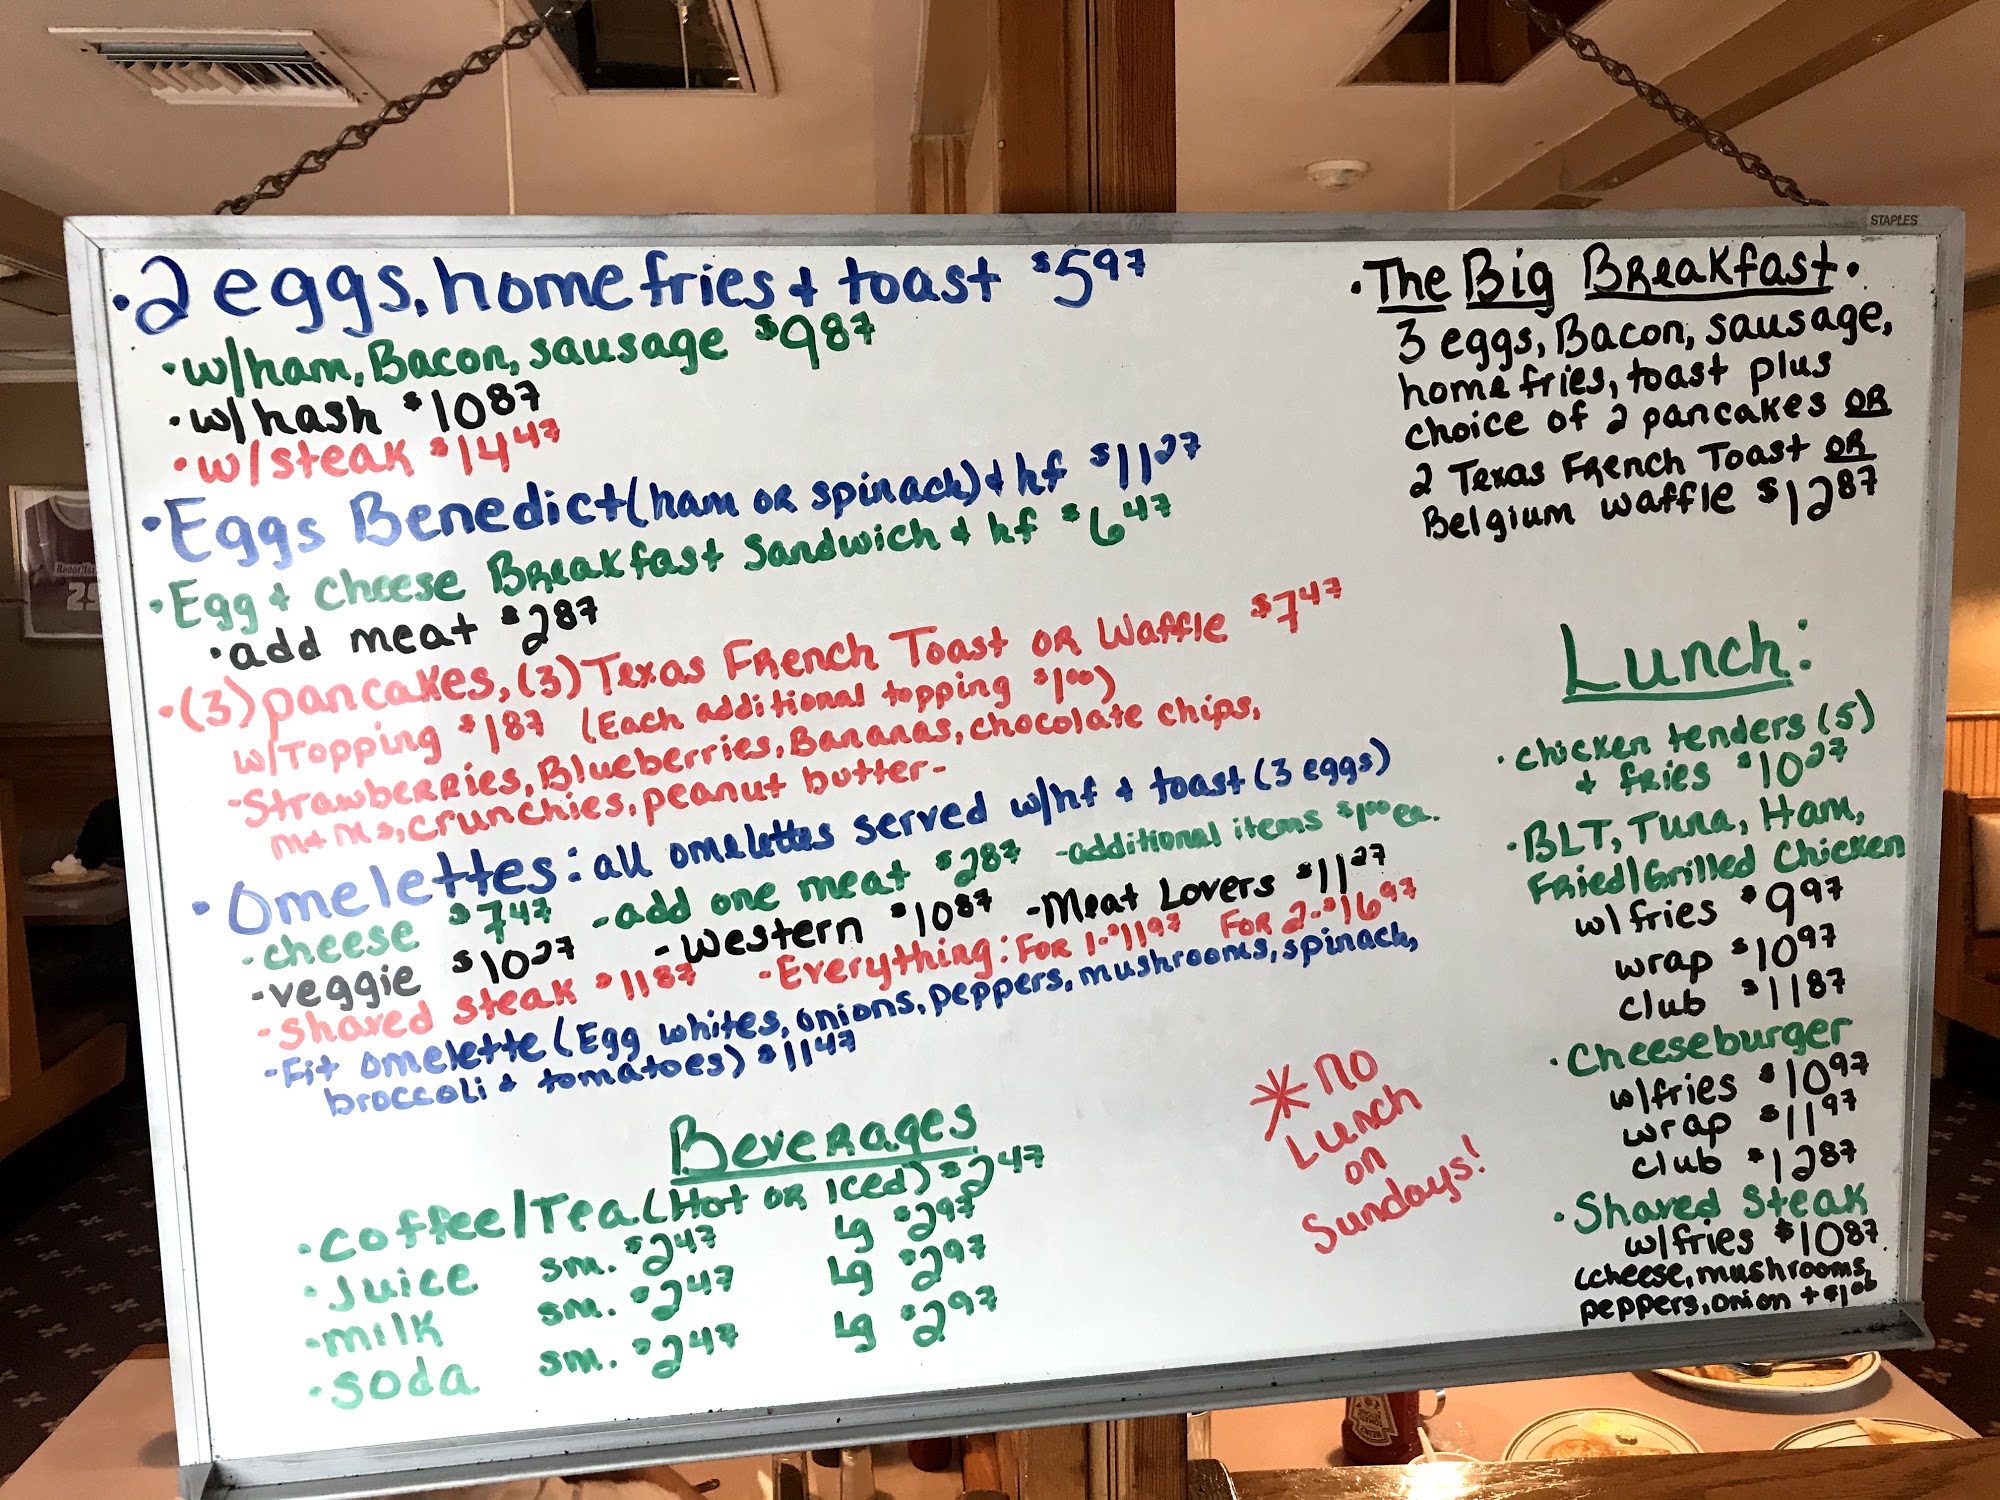 STAPLES
• 2 eggs, homefries + toast $5 97
• w/ham, Bacon, sausage $9 87
• w/hash $10 87
• w/steak $14 47
• Eggs Benedict (ham or spinach) + hf $11 27
• Egg + cheese Breakfast Sandwich + hf $6 47
• add meat $2 87
• (3) pancakes, (3) Texas French Toast or Waffle $7 47
w/Topping $1 87 (Each additional topping $1 00)
- Strawberries, Blueberries, Bananas, chocolate chips,
m+ms, crunchies, peanut butter -
• Omelettes: all omelettes served w/hf + toast (3 eggs)
- cheese $7 47 - add one meat $2 87 - additional items $1 00 ea.
- veggie $10 27 - Western $10 87 - Meat Lovers $11 27
- Shaved steak $11 87 - Everything: For 1 - $11 97 For 2 - $16 97
- Fit omelette (Egg whites, onions, peppers, mushrooms, spinach,
broccoli + tomatoes) $11 47
Beverages
• Coffee/Tea (Hot or Iced) $2 47
• Juice sm. $2 47 Lg $2 97
• milk sm. $2 47 Lg $2 97
• soda sm. $2 47 Lg $2 97
• The Big Breakfast •
3 eggs, Bacon, sausage,
homefries, toast plus
choice of 2 pancakes OR
2 Texas French Toast OR
Belgium Waffle $12 87
Lunch:
• chicken tenders (5)
+ fries $10 27
• BLT, Tuna, Ham,
Fried/Grilled Chicken
w/fries $9 97
wrap $10 97
club $11 87
• Cheeseburger
w/fries $10 97
wrap $11 97
club $12 87
• Shaved Steak
w/fries $10 87
(cheese, mushrooms,
peppers, onion + $1 00
* No
Lunch
on
Sundays!
HEINZ
TOMATO